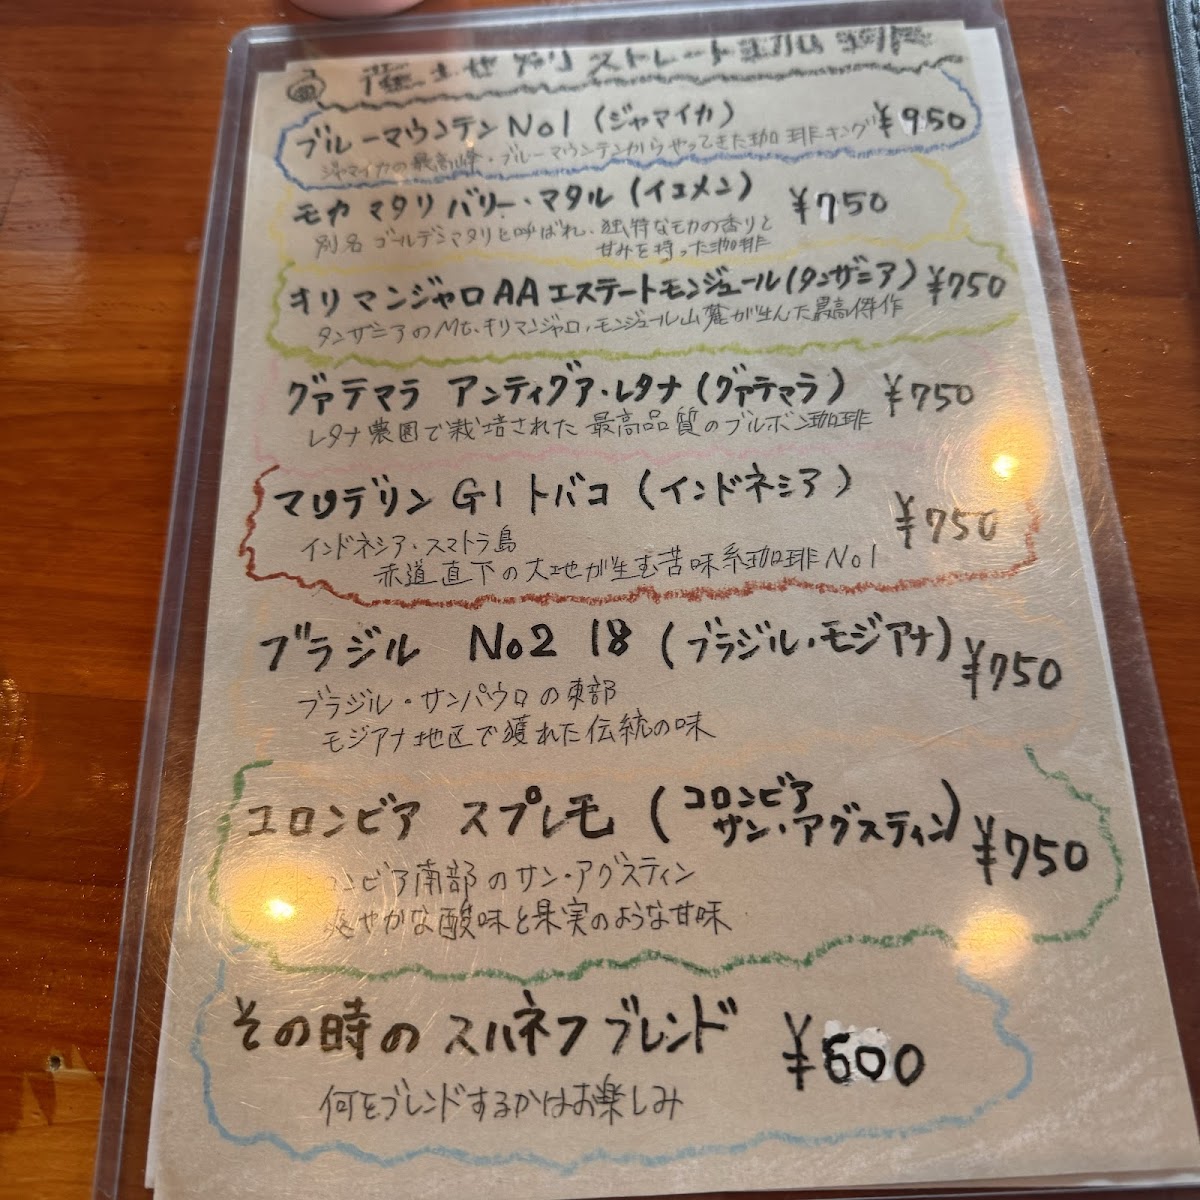 産土地別ストレート珈琲
ブルーマウンテンNo1(ジャマイカ) ¥950
ジャマイカの最高峰・ブルーマウンテンからやってきた珈琲キング
モカ マタリ バリー・マタル(イエメン) ¥750
別名 ゴールデンマタリと呼ばれ、独特なモカの香りと
甘みを持った珈琲
キリマンジャロAAエステートモンジュール(タンザニア) ¥750
タンザニアのMt.キリマンジャロ・モンジュール山麓が生んだ最高傑作
グァテマラ アンティグア・レタナ(グァテマラ) ¥750
レタナ農園で栽培された最高品質のブルボン珈琲
マンデリン G1 トバコ(インドネシア) ¥750
インドネシア・スマトラ島
赤道直下の大地が生む苦味系珈琲No1
ブラジル No2 18(ブラジル・モジアナ) ¥750
ブラジル・サンパウロの東部
モジアナ地区で獲れた伝統の味
コロンビア スプレモ(コロンビア サン・アグスティン) ¥750
コロンビア南部のサン・アグスティン
爽やかな酸味と果実のような甘味
その時のスハネフブレンド ¥600
何をブレンドするかはお楽しみ